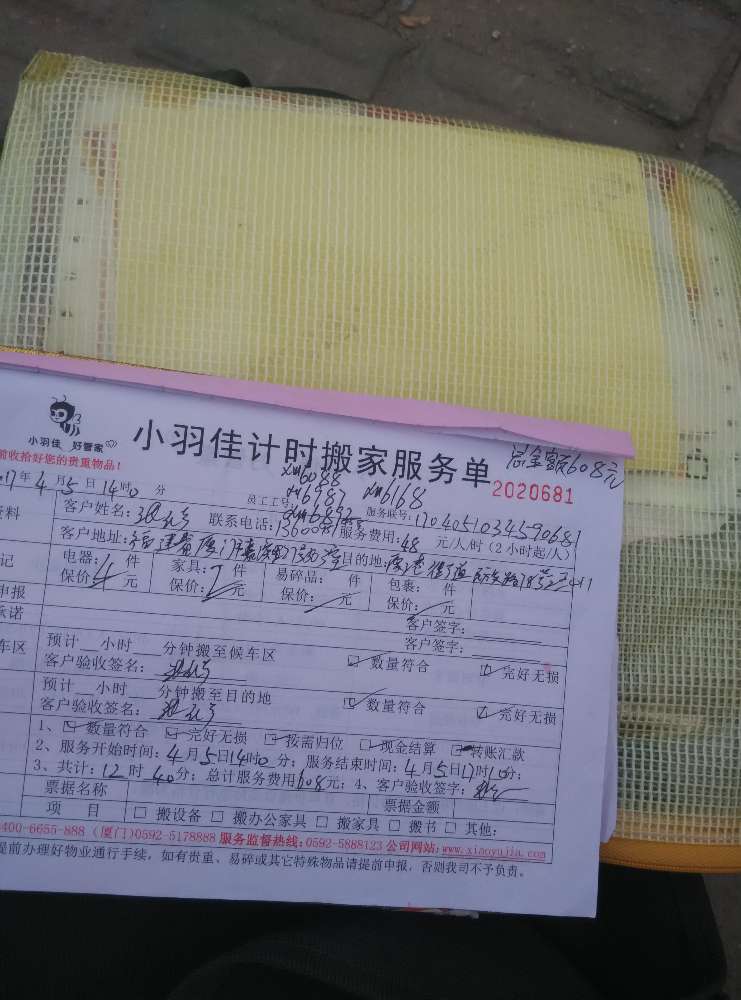 小羽佳 好管家
小羽佳计时搬家服务单
总金额608元
前收拾好您的贵重物品！
2020681
xm6088
xm6987 xm6168
017年4月5日14时0分 员工工号： 服务联号：1704051034590681
资料 客户姓名： 联系电话： 服务费用：48元/人/时（2小时起/人）
客户地址： 目的地：
记 电器： 件 家具： 件 易碎品： 件 包裹： 件
保价： 元 保价： 元 保价： 元 保价： 元
申报 客户签字：
承诺 客户签字：
车区 预计 小时 分钟搬至候车区
客户验收签名： 数量符合 完好无损
预计 小时 分钟搬至目的地
客户验收签名： 数量符合 完好无损
1、数量符合 完好无损 按需归位 现金结算 转账汇款
2、服务开始时间：4月5日14时0分；服务结束时间：4月5日17时10分；
3、共计：12时40分；总计服务费用608元；4、客户签字：
票据名称 票据金额
项 目 搬设备 搬办公家具 搬家具 搬书 其他：
400-6655-888（厦门）0592-5178888 服务监督热线：0592-5888123 公司网站：www.xiaoyujia.com
提前办理好物业通行手续，如有贵重、易碎或其它特殊物品请提前申报，否则我司不予负责。